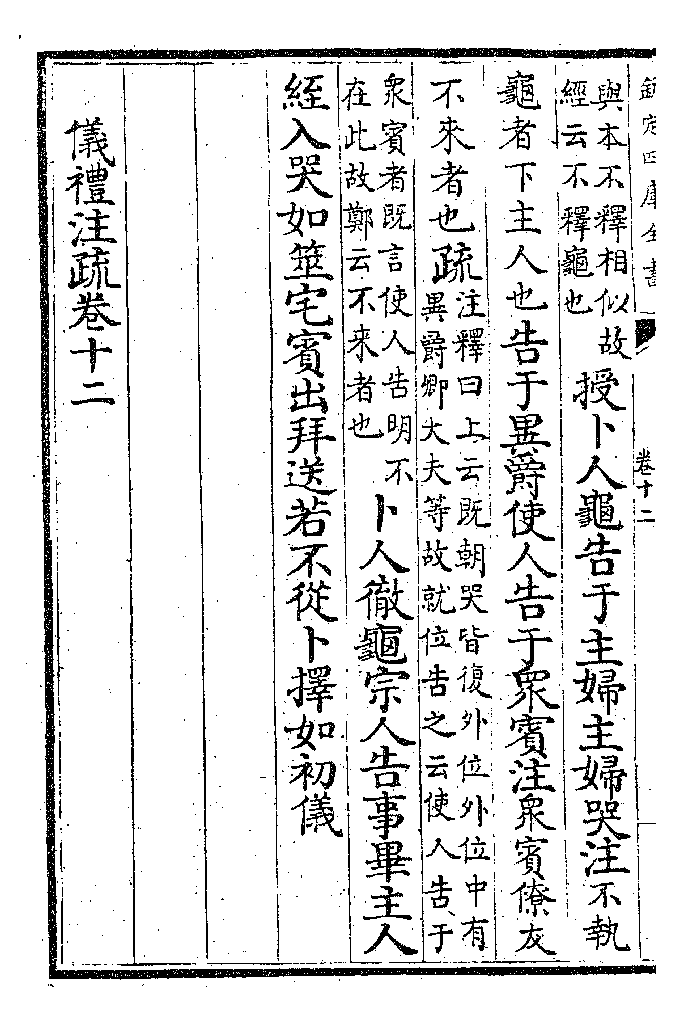 欽定四庫全書
卷十二
與本不釋相似故
經云不釋龜也
授卜人龜告于主婦主婦哭注不執
龜者下主人也告于異爵使人告于眾賓注眾賓僚友
不來者也疏
注釋曰上云既朝哭皆復外位外位中有
異爵卿大夫等故就位告之云使人告于
眾賓者既言使人告明不
在此故鄭云不來者也
卜人徹龜宗人告事畢主人
絰入哭如筮宅賓出拜送若不從卜擇如初儀
儀禮注疏卷十二